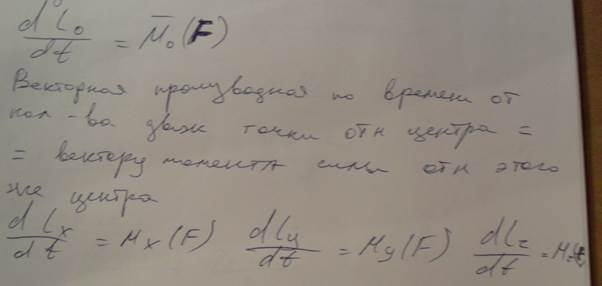 dL₀/dt = M̄₀(F)
Векторная производная по времени от
кол-ва движ точки отн центра =
= вектору момента силы отн этого
же центра
dLx/dt = Mx(F) dLy/dt = My(F) dLz/dt = Mz